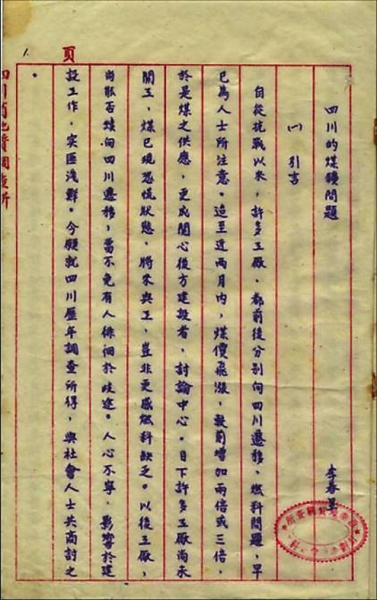 四川的煤鑛問題
李春昱
(一) 引言
自從抗戰以來，許多工廠，都前後分別向四川遷移。燃料問題，早
已為人士所注意。迨至近兩月內，煤價飛漲，較前增加兩倍或三倍，
於是煤之供應，更為關心後方建設者，討論中心。目下許多工廠尚未
開工，煤已現恐慌狀態，將來興工，豈非更感燃料缺乏。以後工廠，
尚能否續向四川遷移，當不免有人徘徊於歧途。人心不寧，影響於建
設工作，實匪淺鮮。今願就四川歷年調查所得，與社會人士共商討之
。
頁
1.
四川省地質調查所